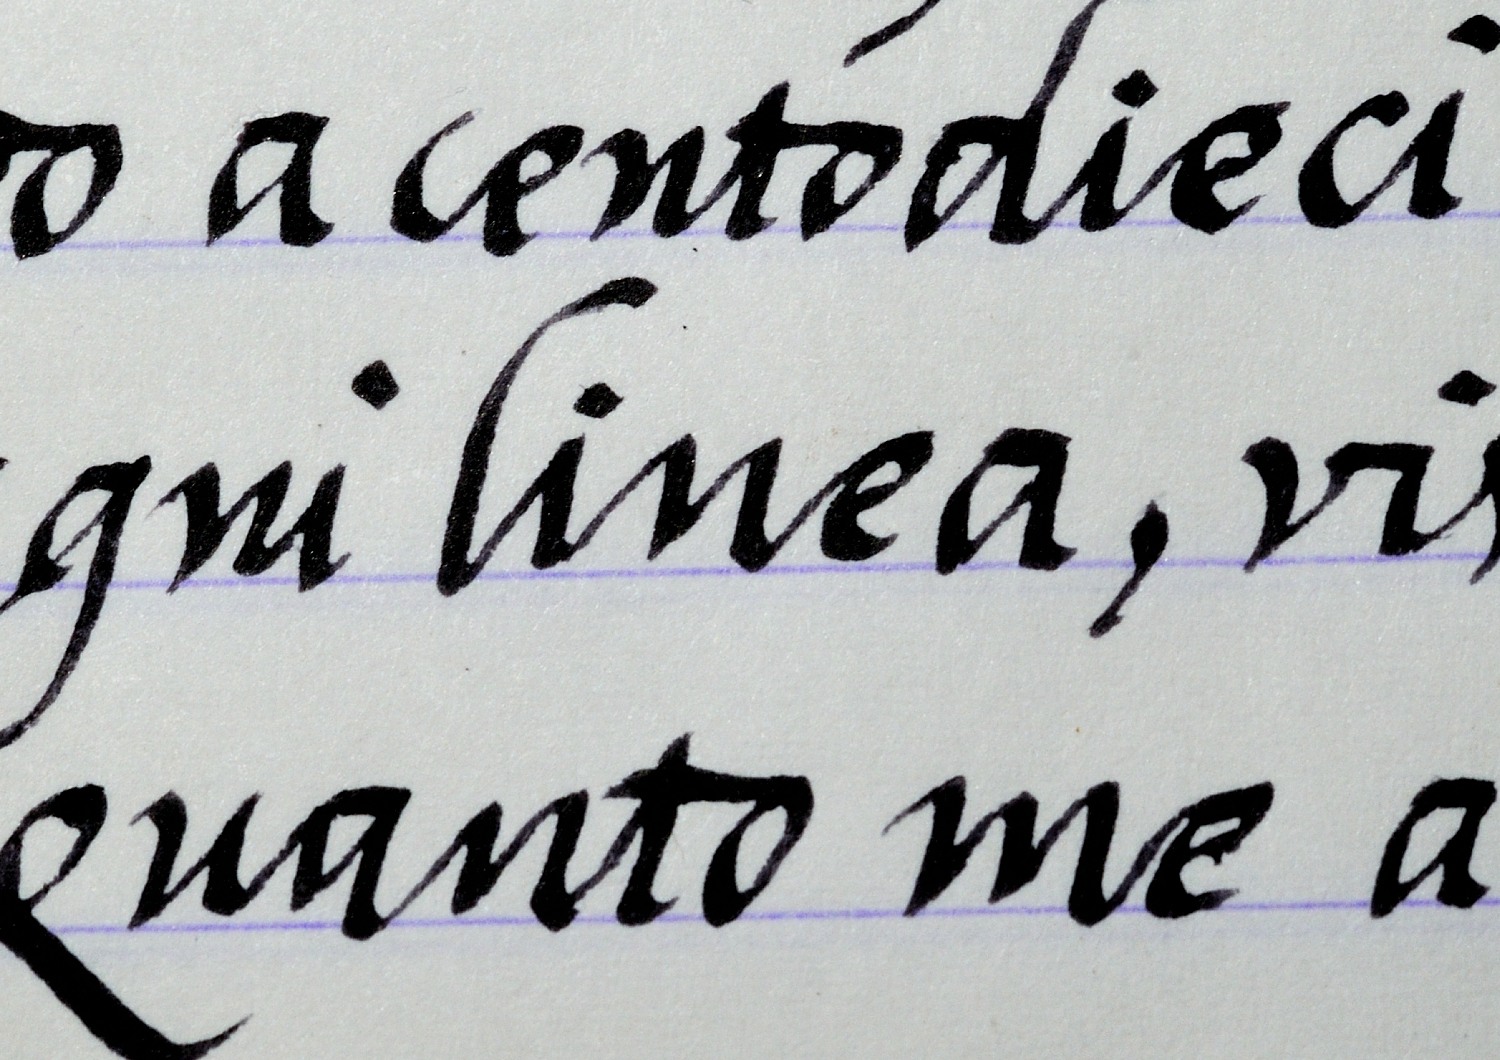 to a centodieci
gni linea, vis
Quanto me a